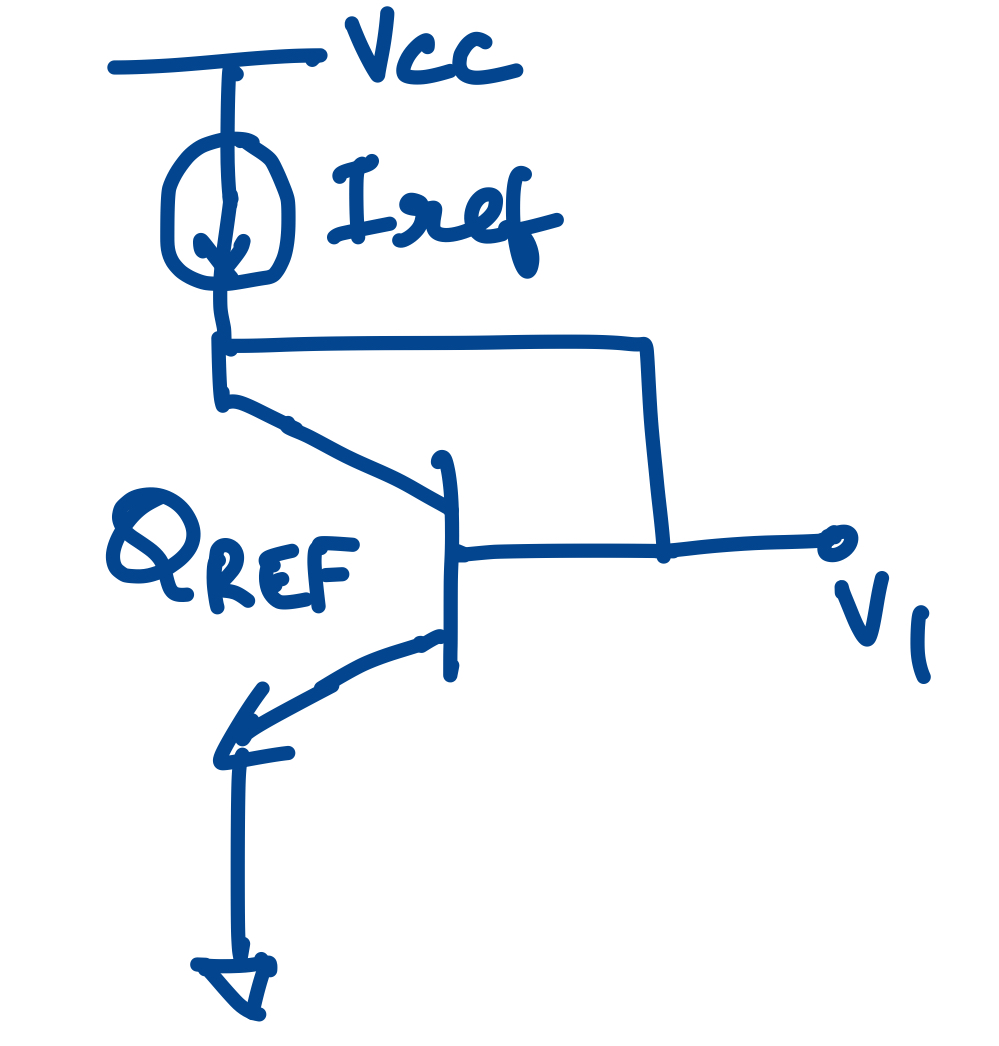 Vcc
Iref
QREF
V1